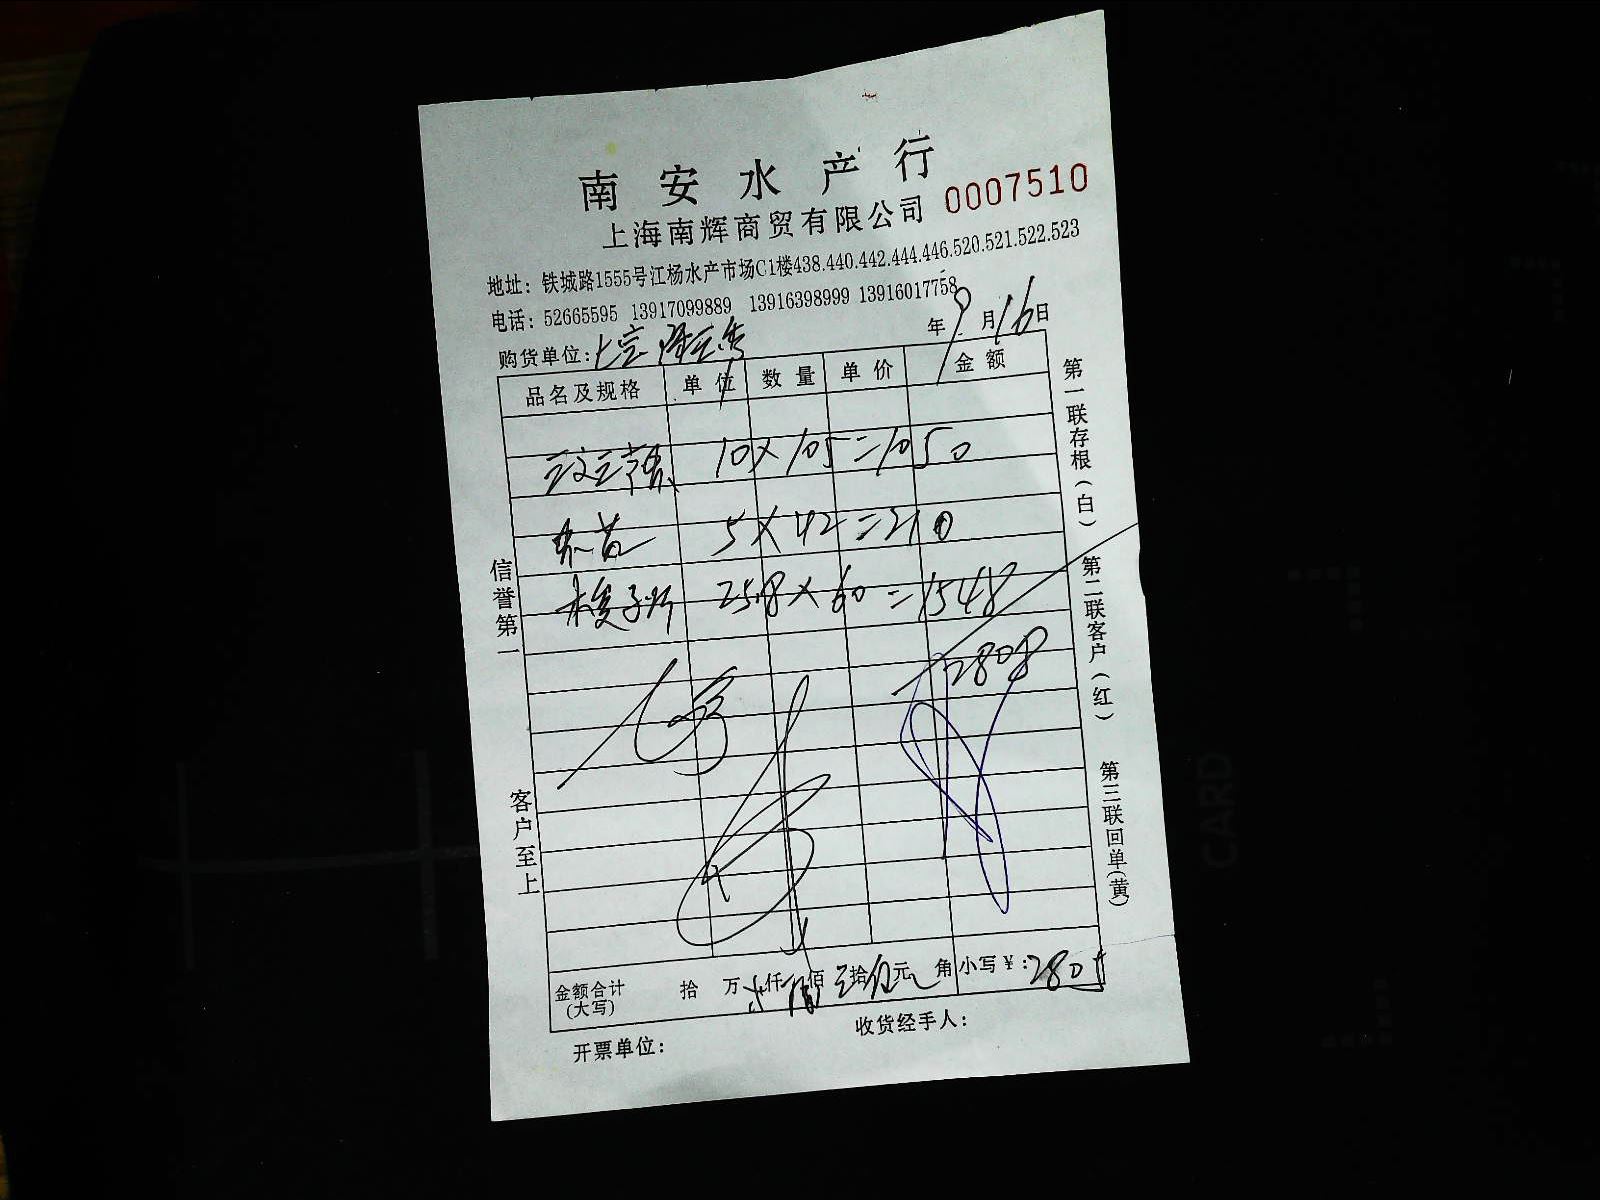 南安水产行
上海南辉商贸有限公司 0007510
地址：铁城路1555号江杨水产市场C1楼438.440.442.444.446.520.521.522.523
电话：52665595 13917099889 13916398999 13916017758
年 9 月 16 日
购货单位：
品名及规格 单位 数量 单价 金额
三文鱼 10 × 105 = 1050
5 × 42 = 210
梭子蟹 25.8 × 60 = 1548
2808
金额合计 拾 万 仟 佰 拾 元 角 小写￥：2808
（大写）
开票单位： 收货经手人：
信誉第一
客户至上
第一联存根（白）
第二联客户（红）
第三联回单（黄）
CARD